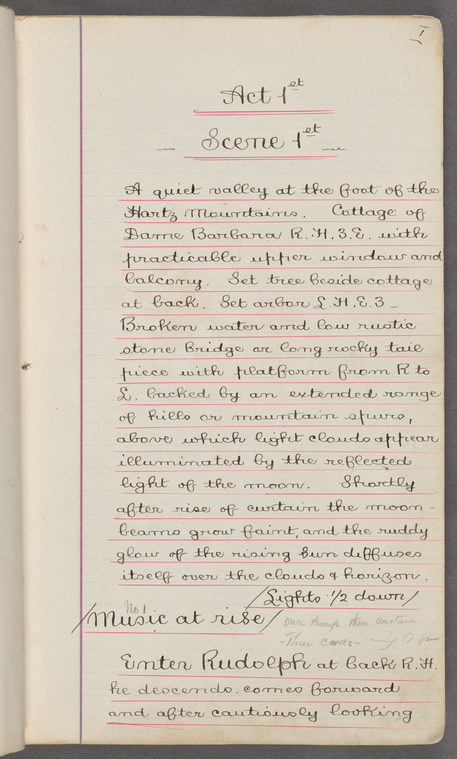 1
Act 1et
Scene 1et
A quiet valley at the foot of the
Hartz Mountains. Cottage of
Dame Barbara R.H.3.E. with
practicable upper window and
balcony. Set tree beside cottage
at back. Set arbor L.H.E.3 _
Broken water and low rustic
stone bridge or long rocky tail
piece with platform from R to
L. backed by an extended range
of hills or mountain spurs,
above which light clouds appear
illuminated by the reflected
light of the moon. Shortly
after rise of curtain the moon-
beams grow faint, and the ruddy
glow of the rising sun diffuses
itself over the clouds & horizon.
/Lights 1/2 down/
No 1
/Music at rise/
once through then curtain
- Three cords -
Enter Rudolph at back R.H.
he descends. comes forward
and after cautiously looking